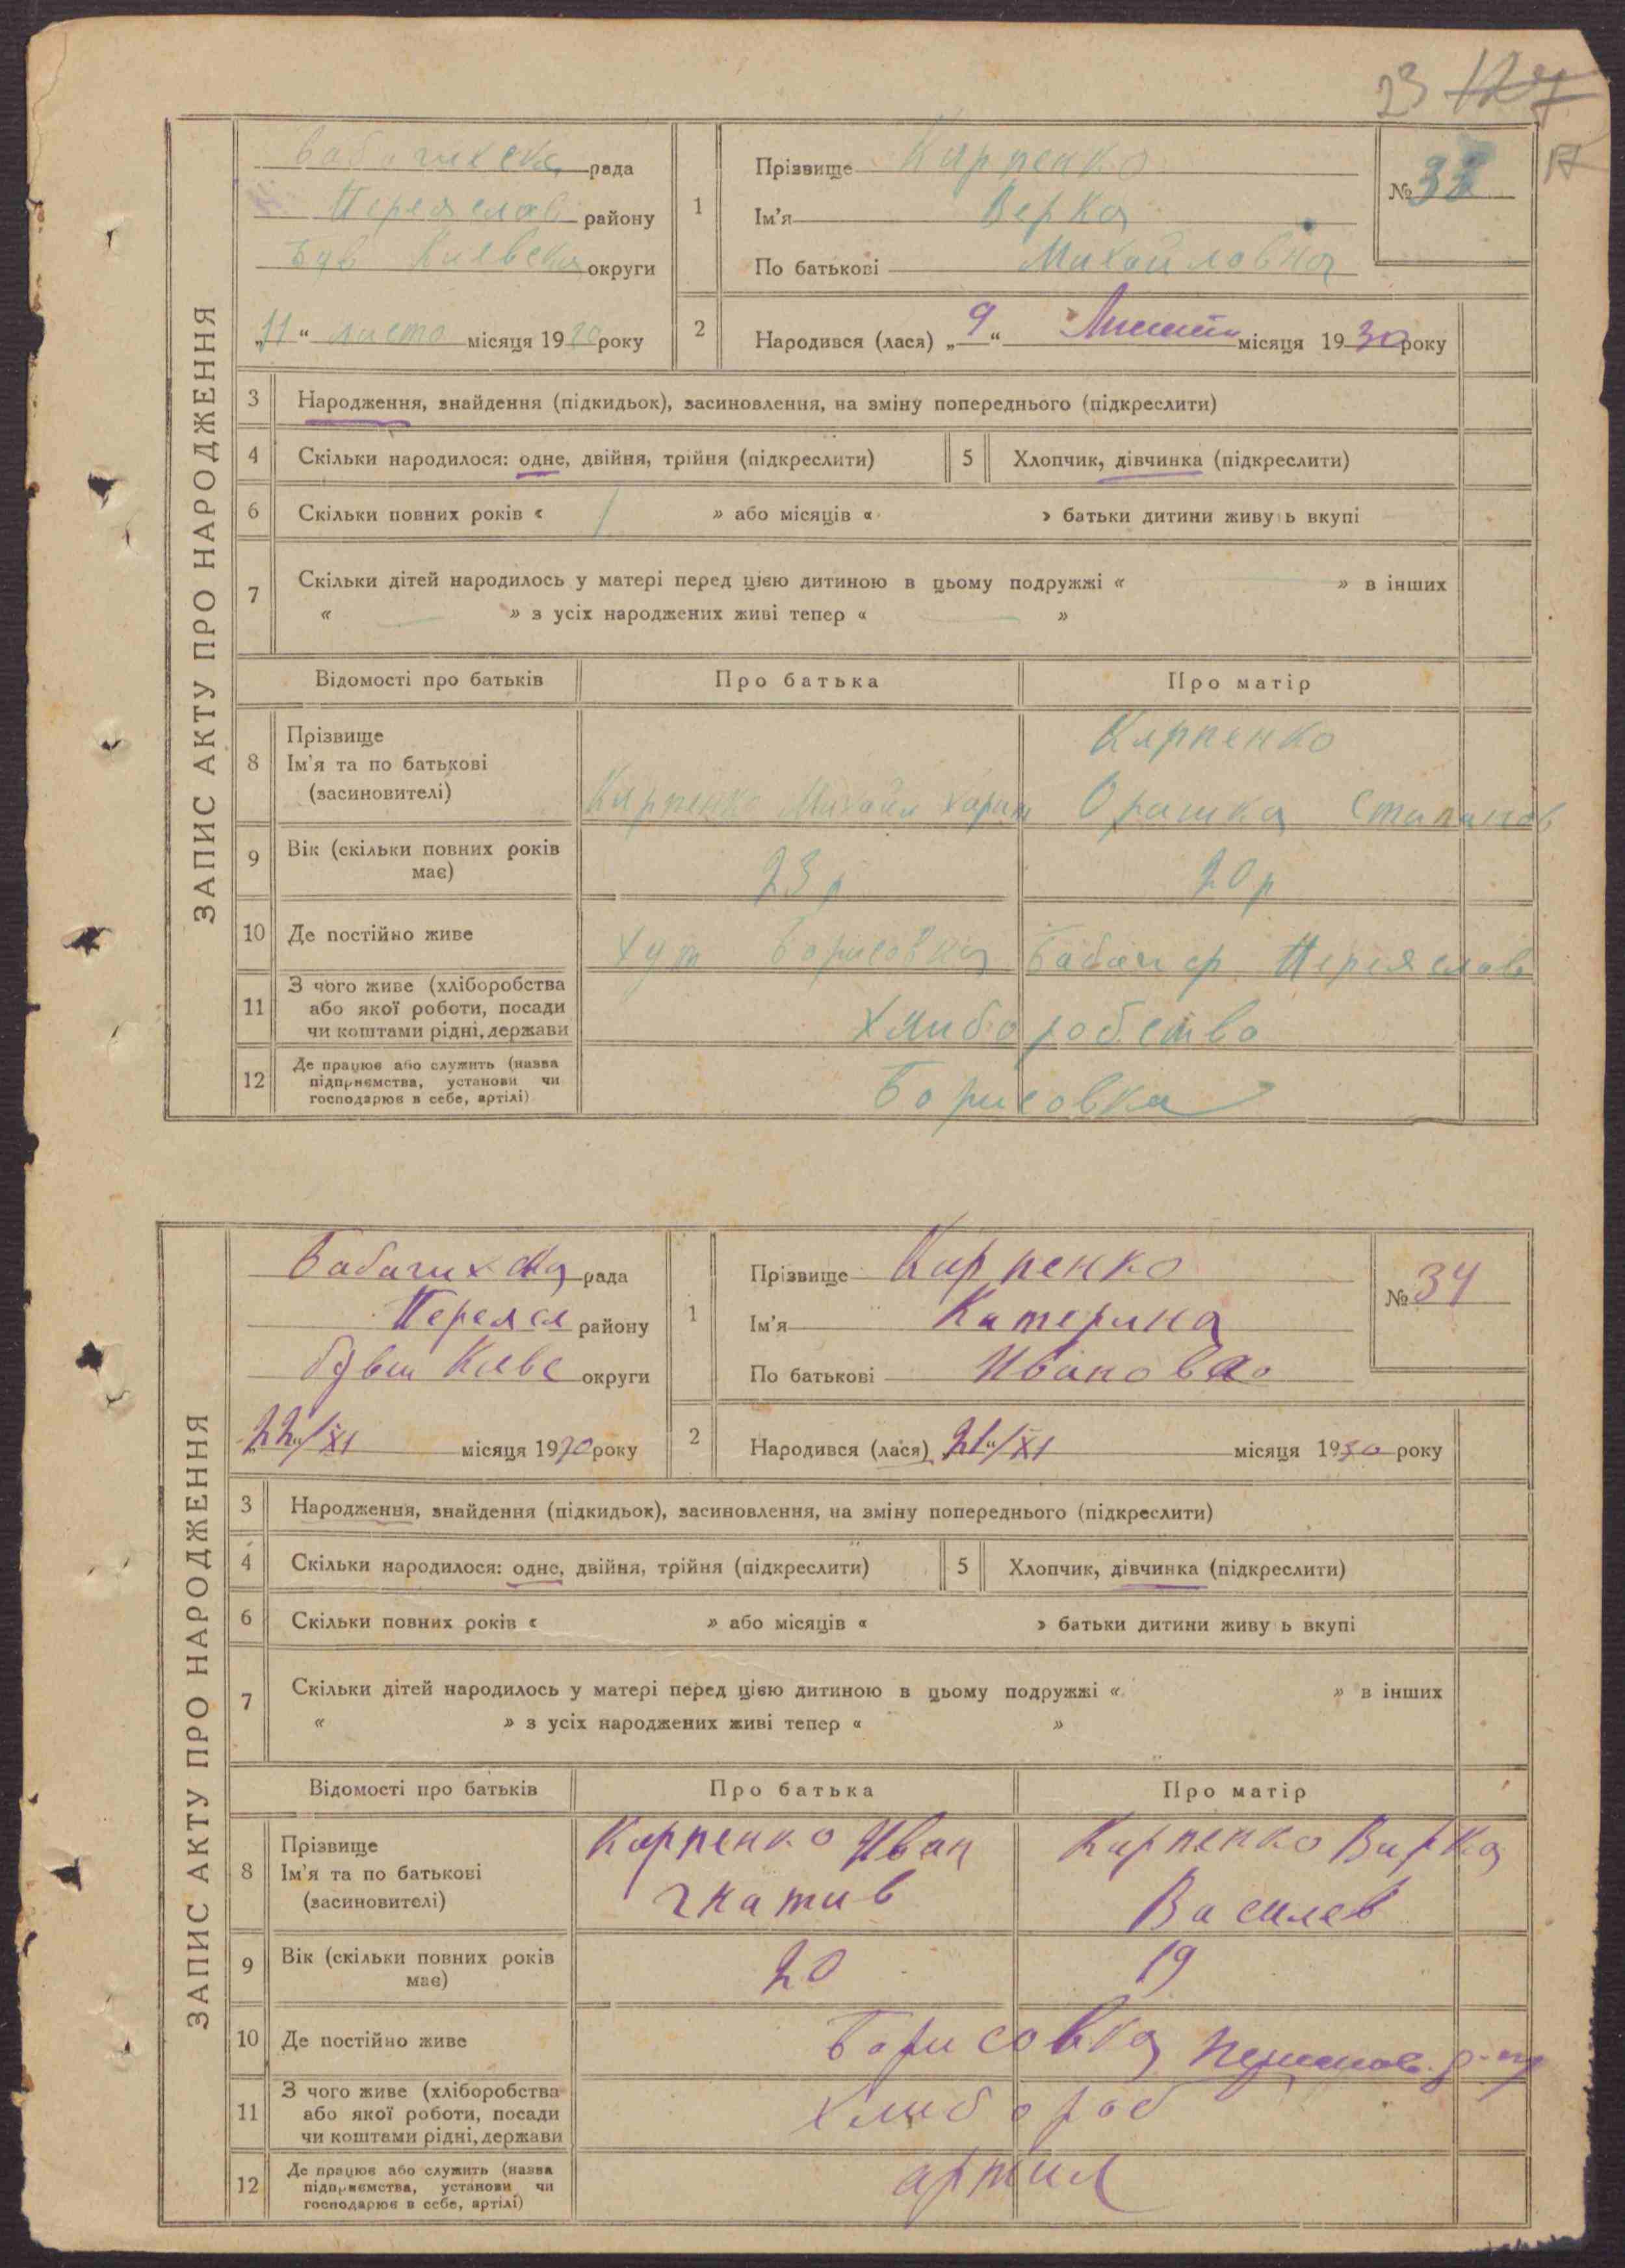 23 127
17
ЗАПИС АКТУ ПРО НАРОДЖЕННЯ
Бабачихска рада
Переяслав району
Був Киевска округи
„11“ листо місяця 1930 року
1
Прізвище Карпенко
Ім'я Верка
По батькові Михайловна
№ 33
2
Народився (лася) „9“ Листоп місяця 1930 року
3 Народження, знайдення (підкидьок), засиновлення, на зміну попереднього (підкреслити)
4 Скільки народилося: одне, двійня, трійня (підкреслити) 5 Хлопчик, дівчинка (підкреслити)
6 Скільки повних років « 1 » або місяців « » батьки дитини живуть вкупі
7 Скільки дітей народилось у матері перед цією дитиною в цьому подружжі « » в інших
« — » з усіх народжених живі тепер « — »
Відомості про батьків Про батька Про матір
8 Прізвище
Ім'я та по батькові
(засиновителі)
Карпенко Михайл Харит
Карпенко
Оришка Стипанов
9 Вік (скільки повних років має) 23 р 20 р
10 Де постійно живе Хут Борисовка Бабач ср Переяслав
11 З чого живе (хліборобства
або якої роботи, посади
чи коштами рідні, держави
Хлиборобство
12 Де працює або служить (назва
підприємства, установи чи
господарює в себе, артілі)
Борисовка
ЗАПИС АКТУ ПРО НАРОДЖЕННЯ
Бабачихска рада
Переясл району
бувш Киевс округи
22/XI місяця 1930 року
1
Прізвище Карпенко
Ім'я Катерина
По батькові Ивановна
№ 34
2
Народився (лася) „21“/XI місяця 1930 року
3 Народження, знайдення (підкидьок), засиновлення, на зміну попереднього (підкреслити)
4 Скільки народилося: одне, двійня, трійня (підкреслити) 5 Хлопчик, дівчинка (підкреслити)
6 Скільки повних років « » або місяців « » батьки дитини живуть вкупі
7 Скільки дітей народилось у матері перед цією дитиною в цьому подружжі « » в інших
« » з усіх народжених живі тепер « »
Відомості про батьків Про батька Про матір
8 Прізвище
Ім'я та по батькові
(засиновителі)
Карпенко Иван
Гнатив
Карпенко Вирка
Василев
9 Вік (скільки повних років має) 20 19
10 Де постійно живе Борисовка
11 З чого живе (хліборобства
або якої роботи, посади
чи коштами рідні, держави
Хлибороб
12 Де працює або служить (назва
підприємства, установи чи
господарює в себе, артілі)
артил